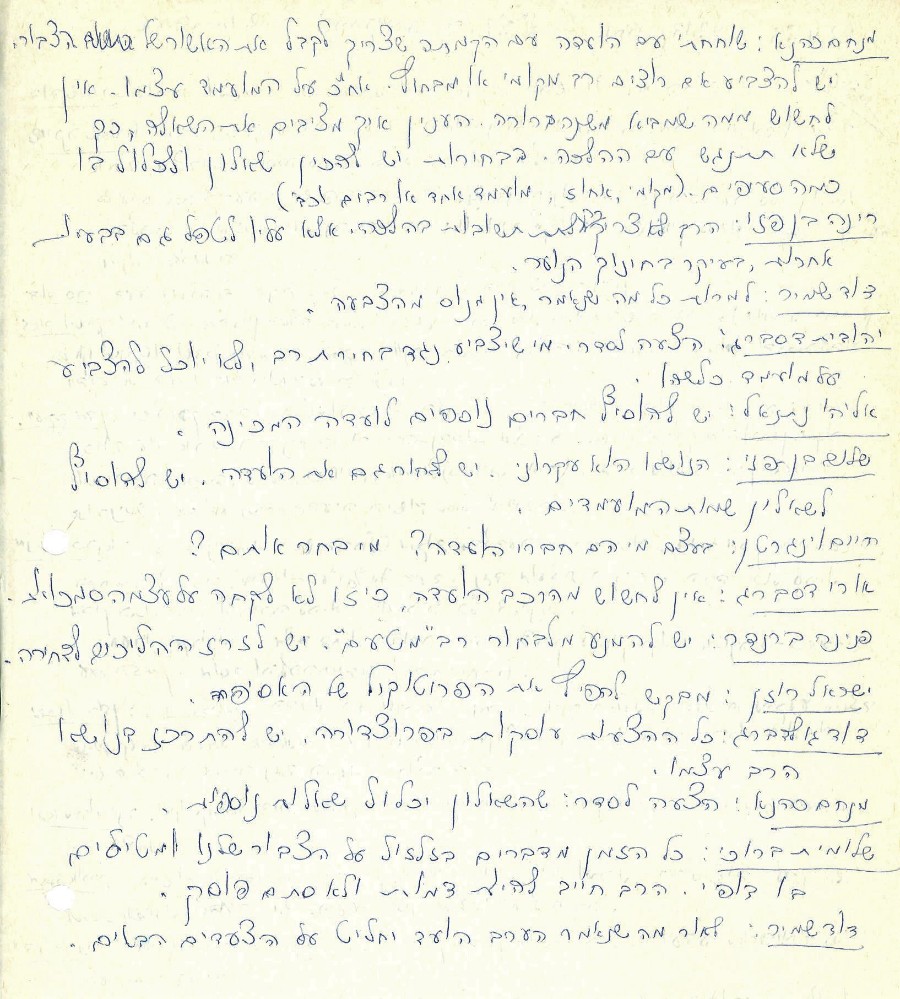 מנחם כהנא: שוחחתי עם הועדה עם הקמתה שצריך לקבל את האשור של הצבור.
יש להצביע אם רוצים רב מקומי או מבחוץ. אח"כ על המועמד עצמו. אין
לחשוש ממה שמביא משנה ברורה. הענין איך מציבים את השאלה, כך
שלא תתנגש עם ההלכה. בבחירות יש להכין שאלון ולכלול בו
כמה סעיפים. (מקומי, אחוז, מועמד אחד או רבים וכו')
רינה בן נפזי: הרב לא צריך לתת תשובות בהלכה. אלא עליו לטפל גם בבעיות
אחרות, בעיקר בחינוך הנוער.
דוד שמיר: למרות כל מה שנאמר, אין מנוס מהצבעה.
יהודית דסברג: הצעה לסדר. מי שיצביע נגד בחירת רב, לא יוכל להצביע
על מועמד כלשהו.
אליהו נתנאל: יש להוסיף חברים נוספים לועדה המכינה.
שלום בן נפזי: הנושא הוא עקרוני. יש לבחור גם את הועדה. יש להוסיף
לשאלון שמות המועמדים.
חיים וינגרטן: בעצם מי הם חברי הועדה? מי בחר אותם?
אורי דסברג: אין לחשוש מהרכב הועדה, כי זו לא לקחה על עצמה סמכויות.
פנינה ברנדה: יש להמנע מלבחור רב "מטעם". יש לזרז ההליכים לבחירה.
ישראל רוזן: מבקש להפיץ את הפרוטוקול של האסיפה.
דוד גולדברג: כל ההצעות עוסקות בפרוצדורה. יש להתרכז בנושא
הרב עצמו.
מנחם כהנא: הצעה לסדר: שהשאלון יכלול שאלות נוספות.
שלומית ברוכי: כל הזמן מדברים בזלזול על הצבור שלנו ומטילים
בו דופי. הרב חייב להיות דמות ולא סתם פוסק.
דוד שמיר: לאור מה שנאמר הערב הועד יחליט על הצעדים הבאים.